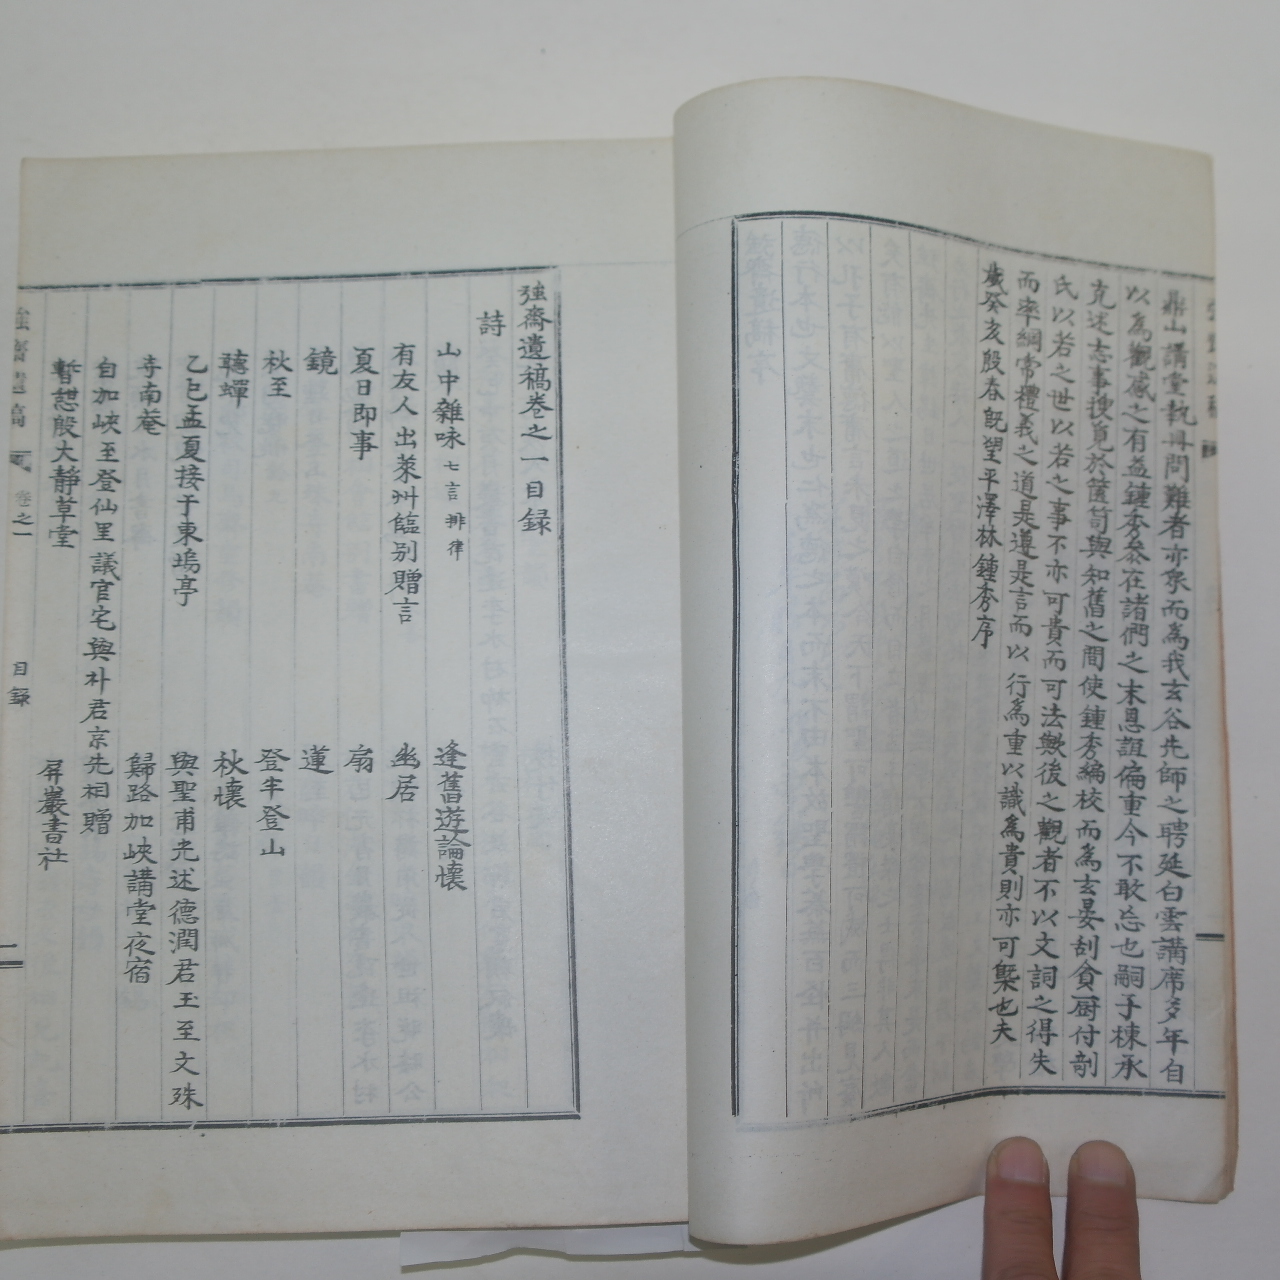 鼎山講堂執冊問難者亦衆而為我玄谷先師之聘延白雲講席多年自
以為觀感之有益鍾秀參在諸們之末恩誼偏重今不敢忘也嗣子棟承
克述志事搜覓於篋笥與知舊之間使鍾秀編校而為玄晏刮貪厨付剞
氏以若之世以若之事不亦可貴而可法歟後之觀者不以文詞之得失
而率綱常禮義之道是遵是言而以行為重以識為貴則亦可槩也夫
歲癸亥殷春旣望平澤林鍾秀序
強齋遺稿卷之一目録
詩
山中雜咏 七言排律 逢舊遊論懷
有友人出萊州臨別贈言 幽居
夏日即事 扇
鏡 蓮
秋至 登牢登山
聽蟬 秋懷
乙巳孟夏接于東塢亭 與聖甫光述德潤君玉至文殊
寺南菴 歸路加峽講堂夜宿
自加峽至登仙里議官宅與朴君京先祠贈
暫憩殷大靜草堂 屏巖書社
強齋遺稿 卷之一 目録 一